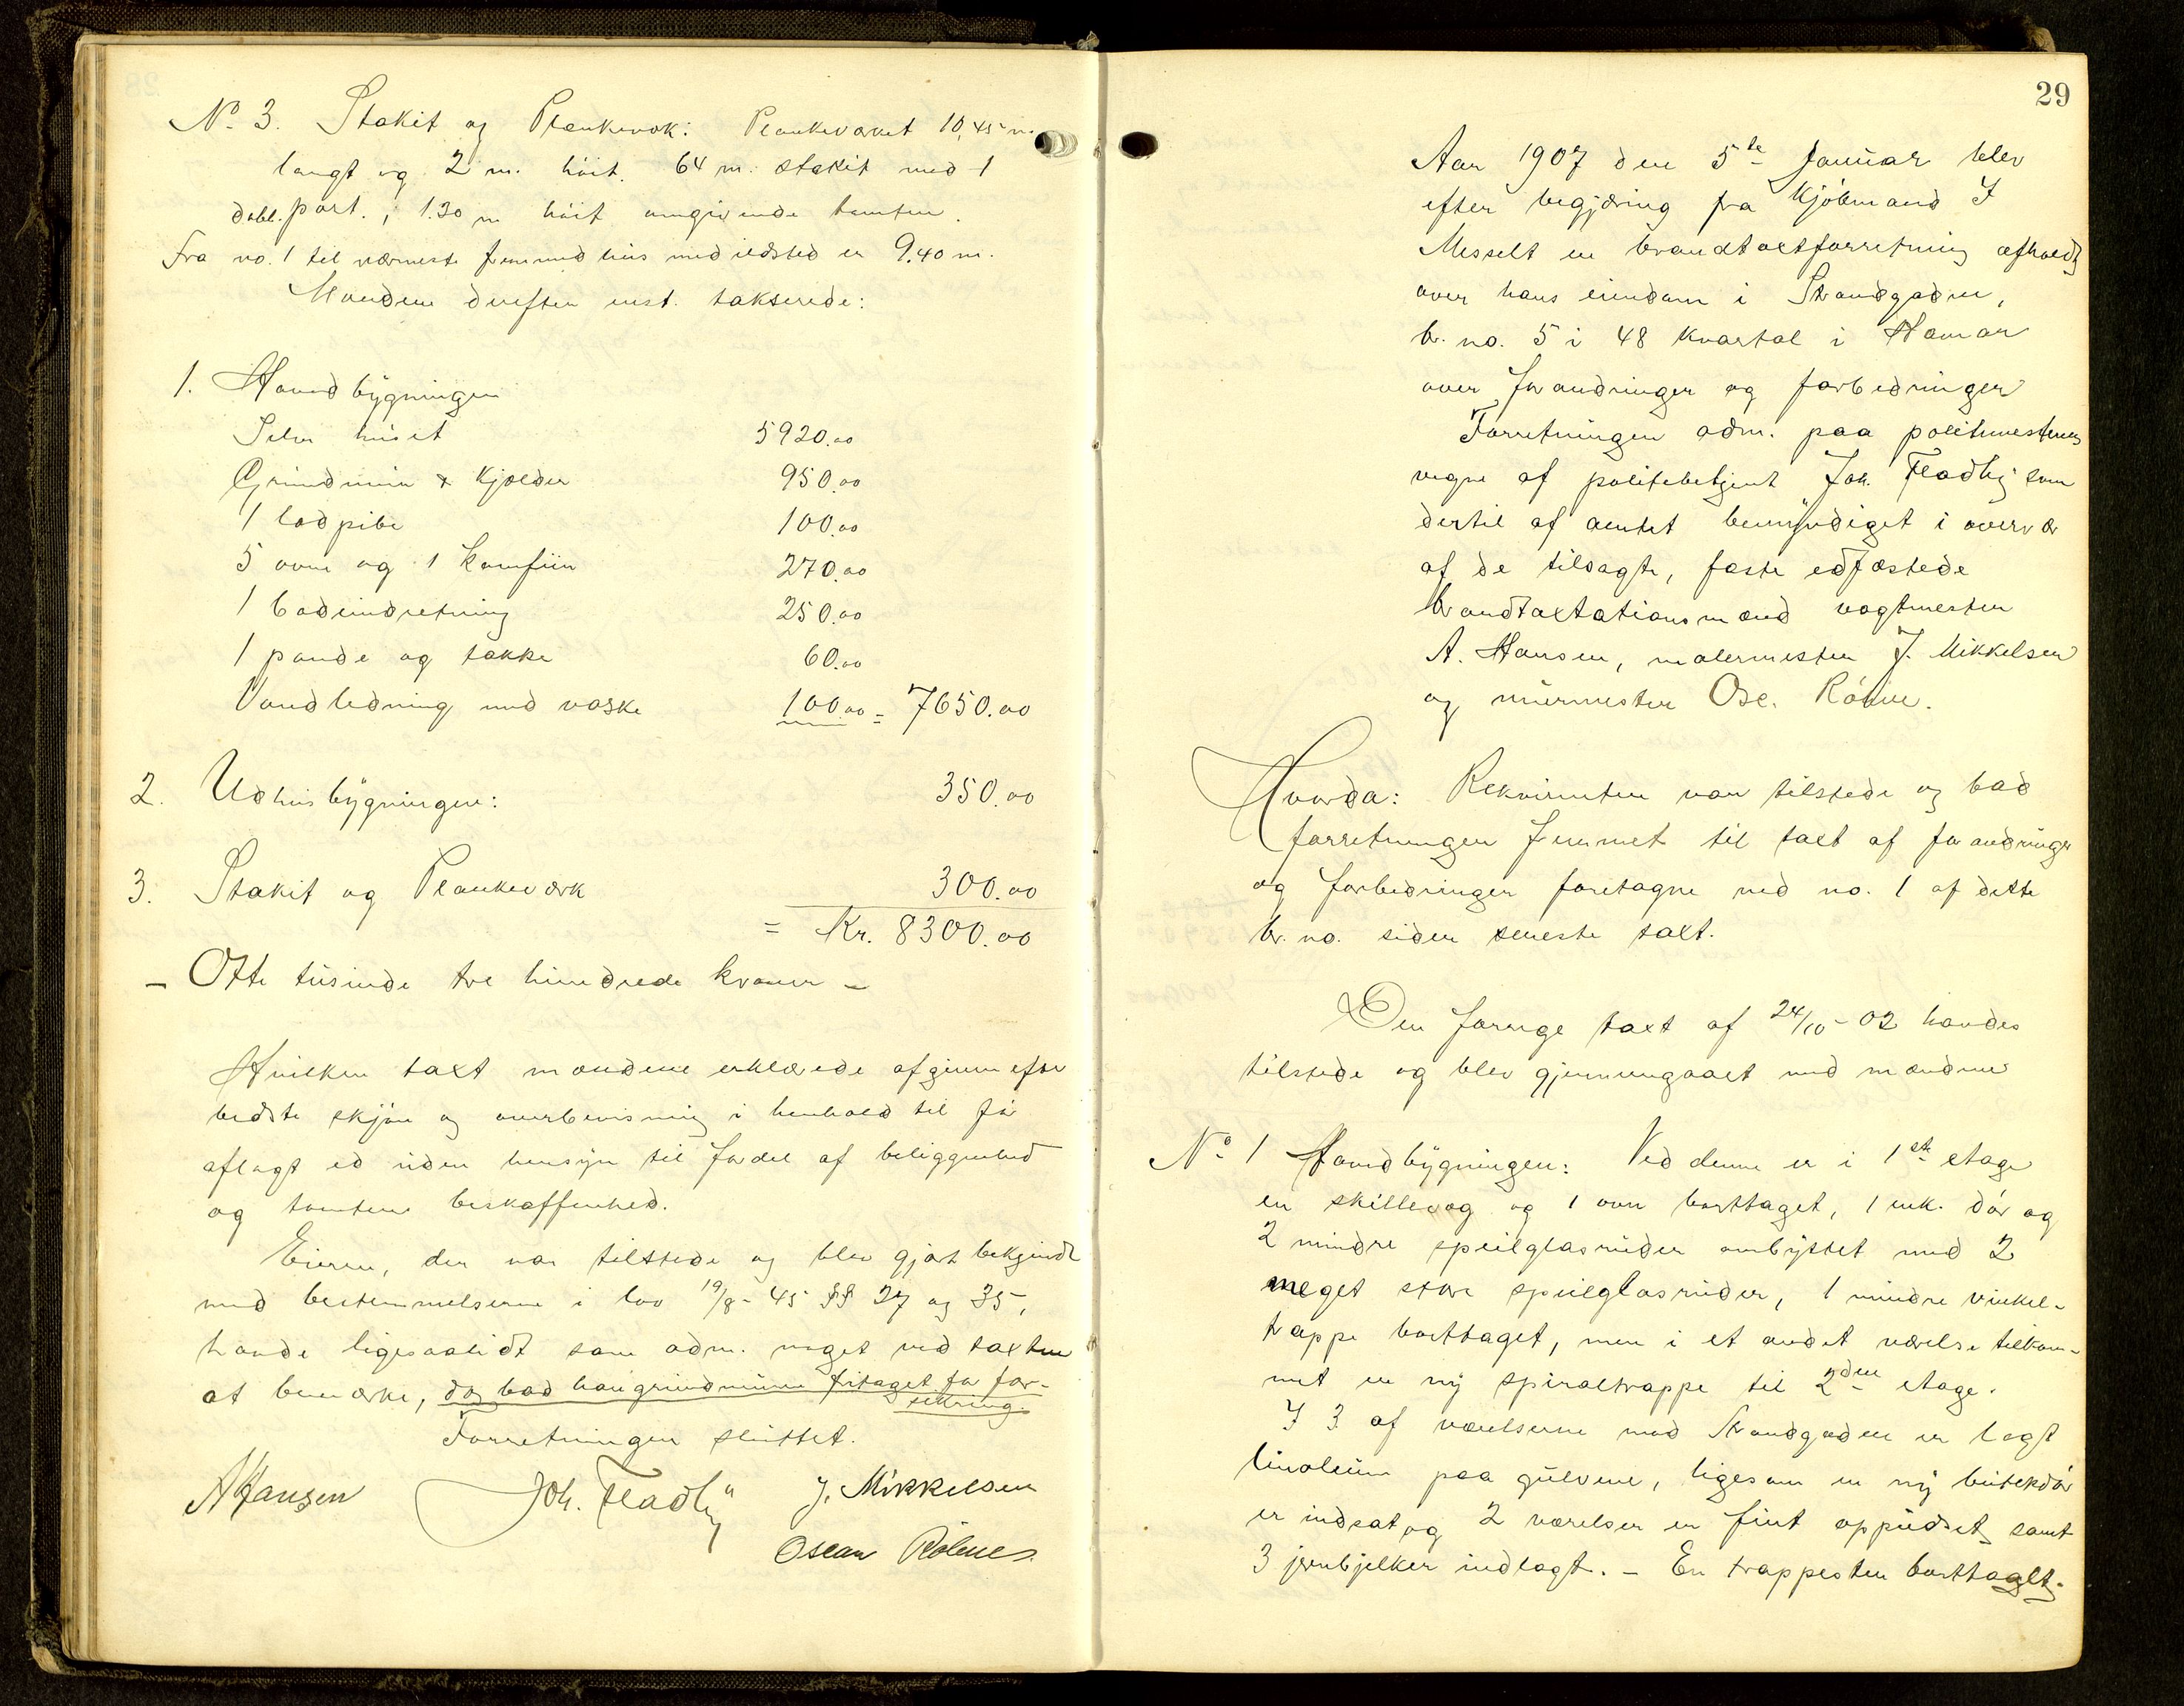 No 3. Stakit og Plankeverk: Plankeværket 10,45 m.
langt og 2 m. höit. 64 m. stakit med 1
dobl. port, 1.30 m höit omgivende tomten.
Fra no. 1 til nærmeste fremmed hus med ildsted er 9.40 m.
Mændene derefter enst. takserede:
1. Hovedbygningen
Selve huset 5920.00
Grundmur & Kjælder 950.00
1 lodpibe 100.00
5 ovne og 1 komfur 270.00
1 badeindretning 250.00
1 pande og takke 60.00
Vandledning med vaske 100.00 = 7650.00
2. Udhusbygningen: 350.00
3. Stakit og Plankeværk 300.00
= Kr. 8300.00
- Otte tusinde tre hundrede kroner -
Hvilken taxt mændene erklærede afgivne efter
bedste skjön og overbevisning i henhold til för
aflagt ed uden hensyn til fordel af beliggenhed
og tomtens beskaffenhed.
Eieren, der var tilstede og blev gjort bekjendt
med bestemmelserne i lov 19/8-45 §§ 27 og 35,
havde ligesaalidt som adm. noget ved taxten
at bemærke, dog bad han grundmuren fritaget for for-
sikring.
Forretningen sluttet.
A Hansen Joh. Fladby J. Mikkelsen
Oscar Rölnes
29
Aar 1907 den 5te Januar blev
efter begjæring fra Kjöbmand I
Messelt en brandtaxtforretning afholdt
over hans eiendom i Strandgaden,
br. no. 5 i 48 kvartal i Hamar
over forandringer og forbedringer
Forretningen adm. paa politimesterens
vegne af politibetjent Joh. Fladby som
dertil af amtet bemyndiget i overvær
af de tilsagte, faste edfæstede
brandtaxtationsmænd vagtmester
A. Hansen, malermester J. Mikkelsen
og murmester Osc. Rölne.
Hvorda: Rekvirenten var tilstede og bad
forretningen fremmet til taxt af forandringer
og forbedringer foretagne ved no. 1 af dette
br. no. siden seneste taxt.
Den forrige taxt af 24/10-02 havdes
tilstede og blev gjennemgaaet med mændene
No 1 Hovedbygningen: Ved denne er i 1ste etage
en skillevæg og 1 ovn borttaget, 1 enk. dör og
2 mindre speilglasruder ombyttet med 2
meget store speilglasruder, 1 mindre vinkel-
trappe borttaget, men i et andet værelse tilkom-
met en ny spiraltrappe til 2den etage.
I 3 af værelserne mod Strandgaden er lagt
linoleum paa gulvene, ligesom en ny butikdör
er indsat og 2 værelser er fint oppudset samt
3 jernbjelker indlagt. - En trappesten borttaget.